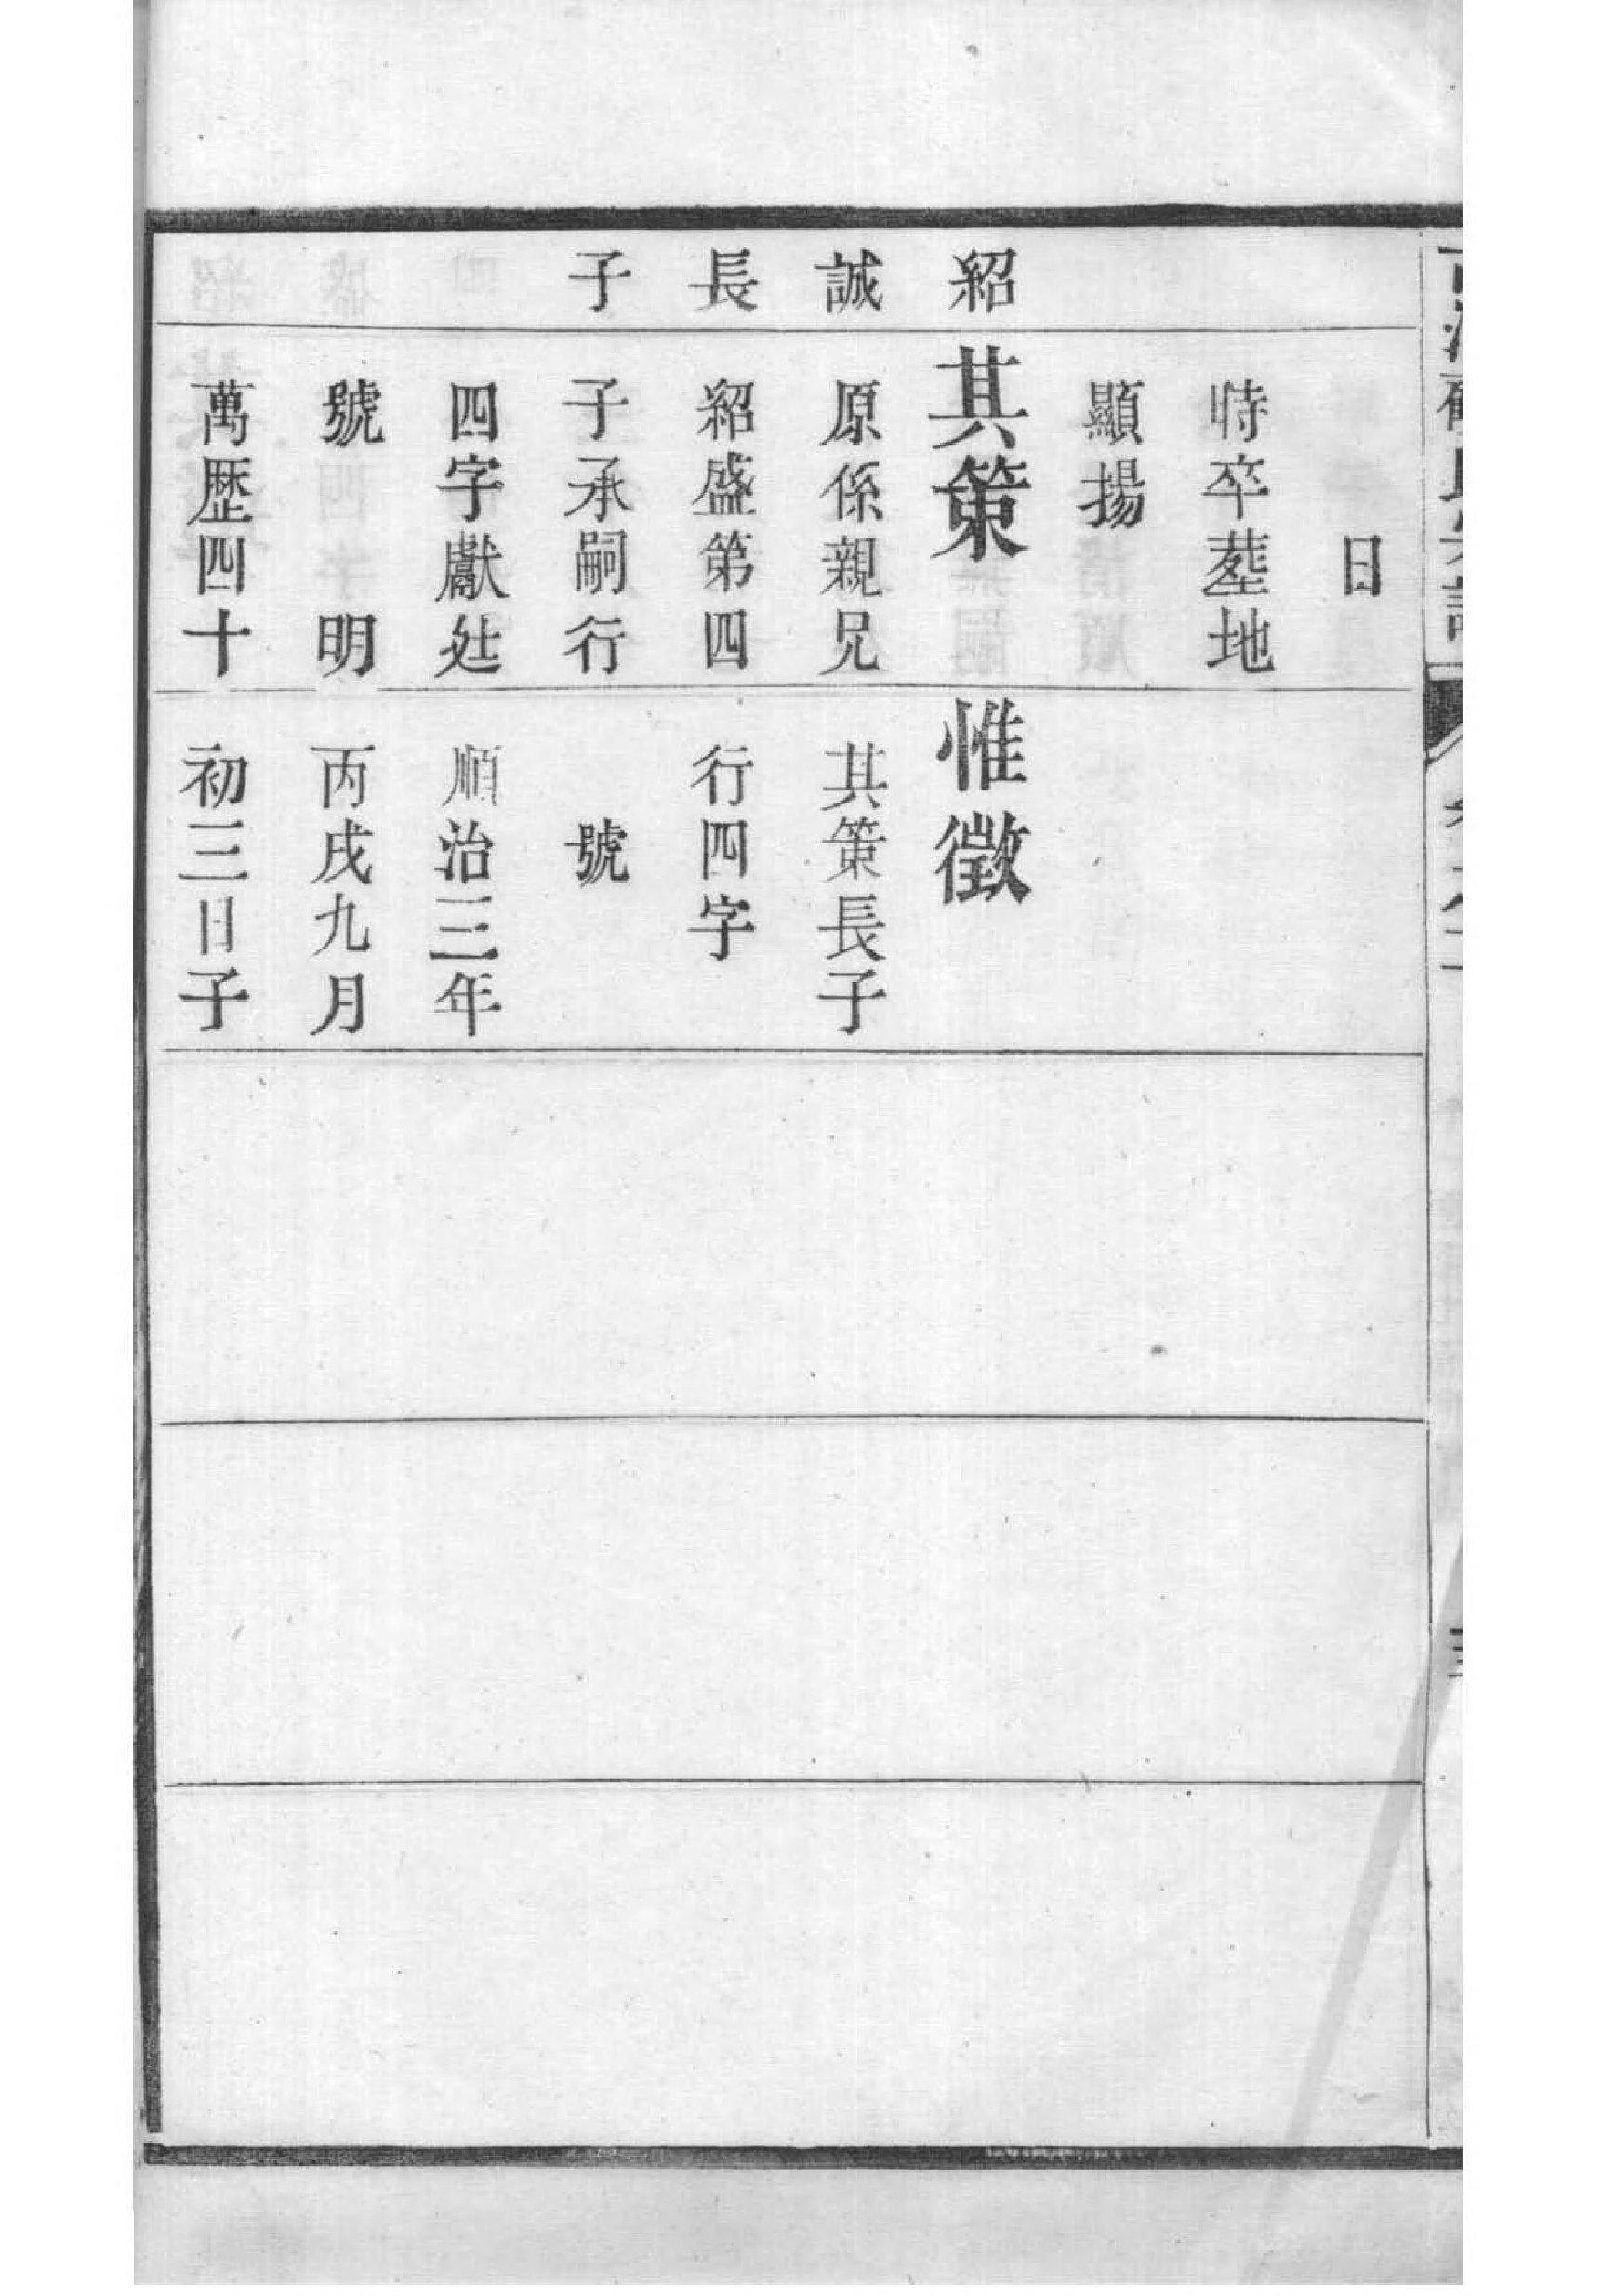 紹
誠
長
子
日
時卒塟地
顯揚
其策
原係親兄
紹盛第四
子承嗣行
四字獻廷
號　明
萬歴四十
惟徵
其策長子
行四字
號
順治三年
丙戌九月
初三日子